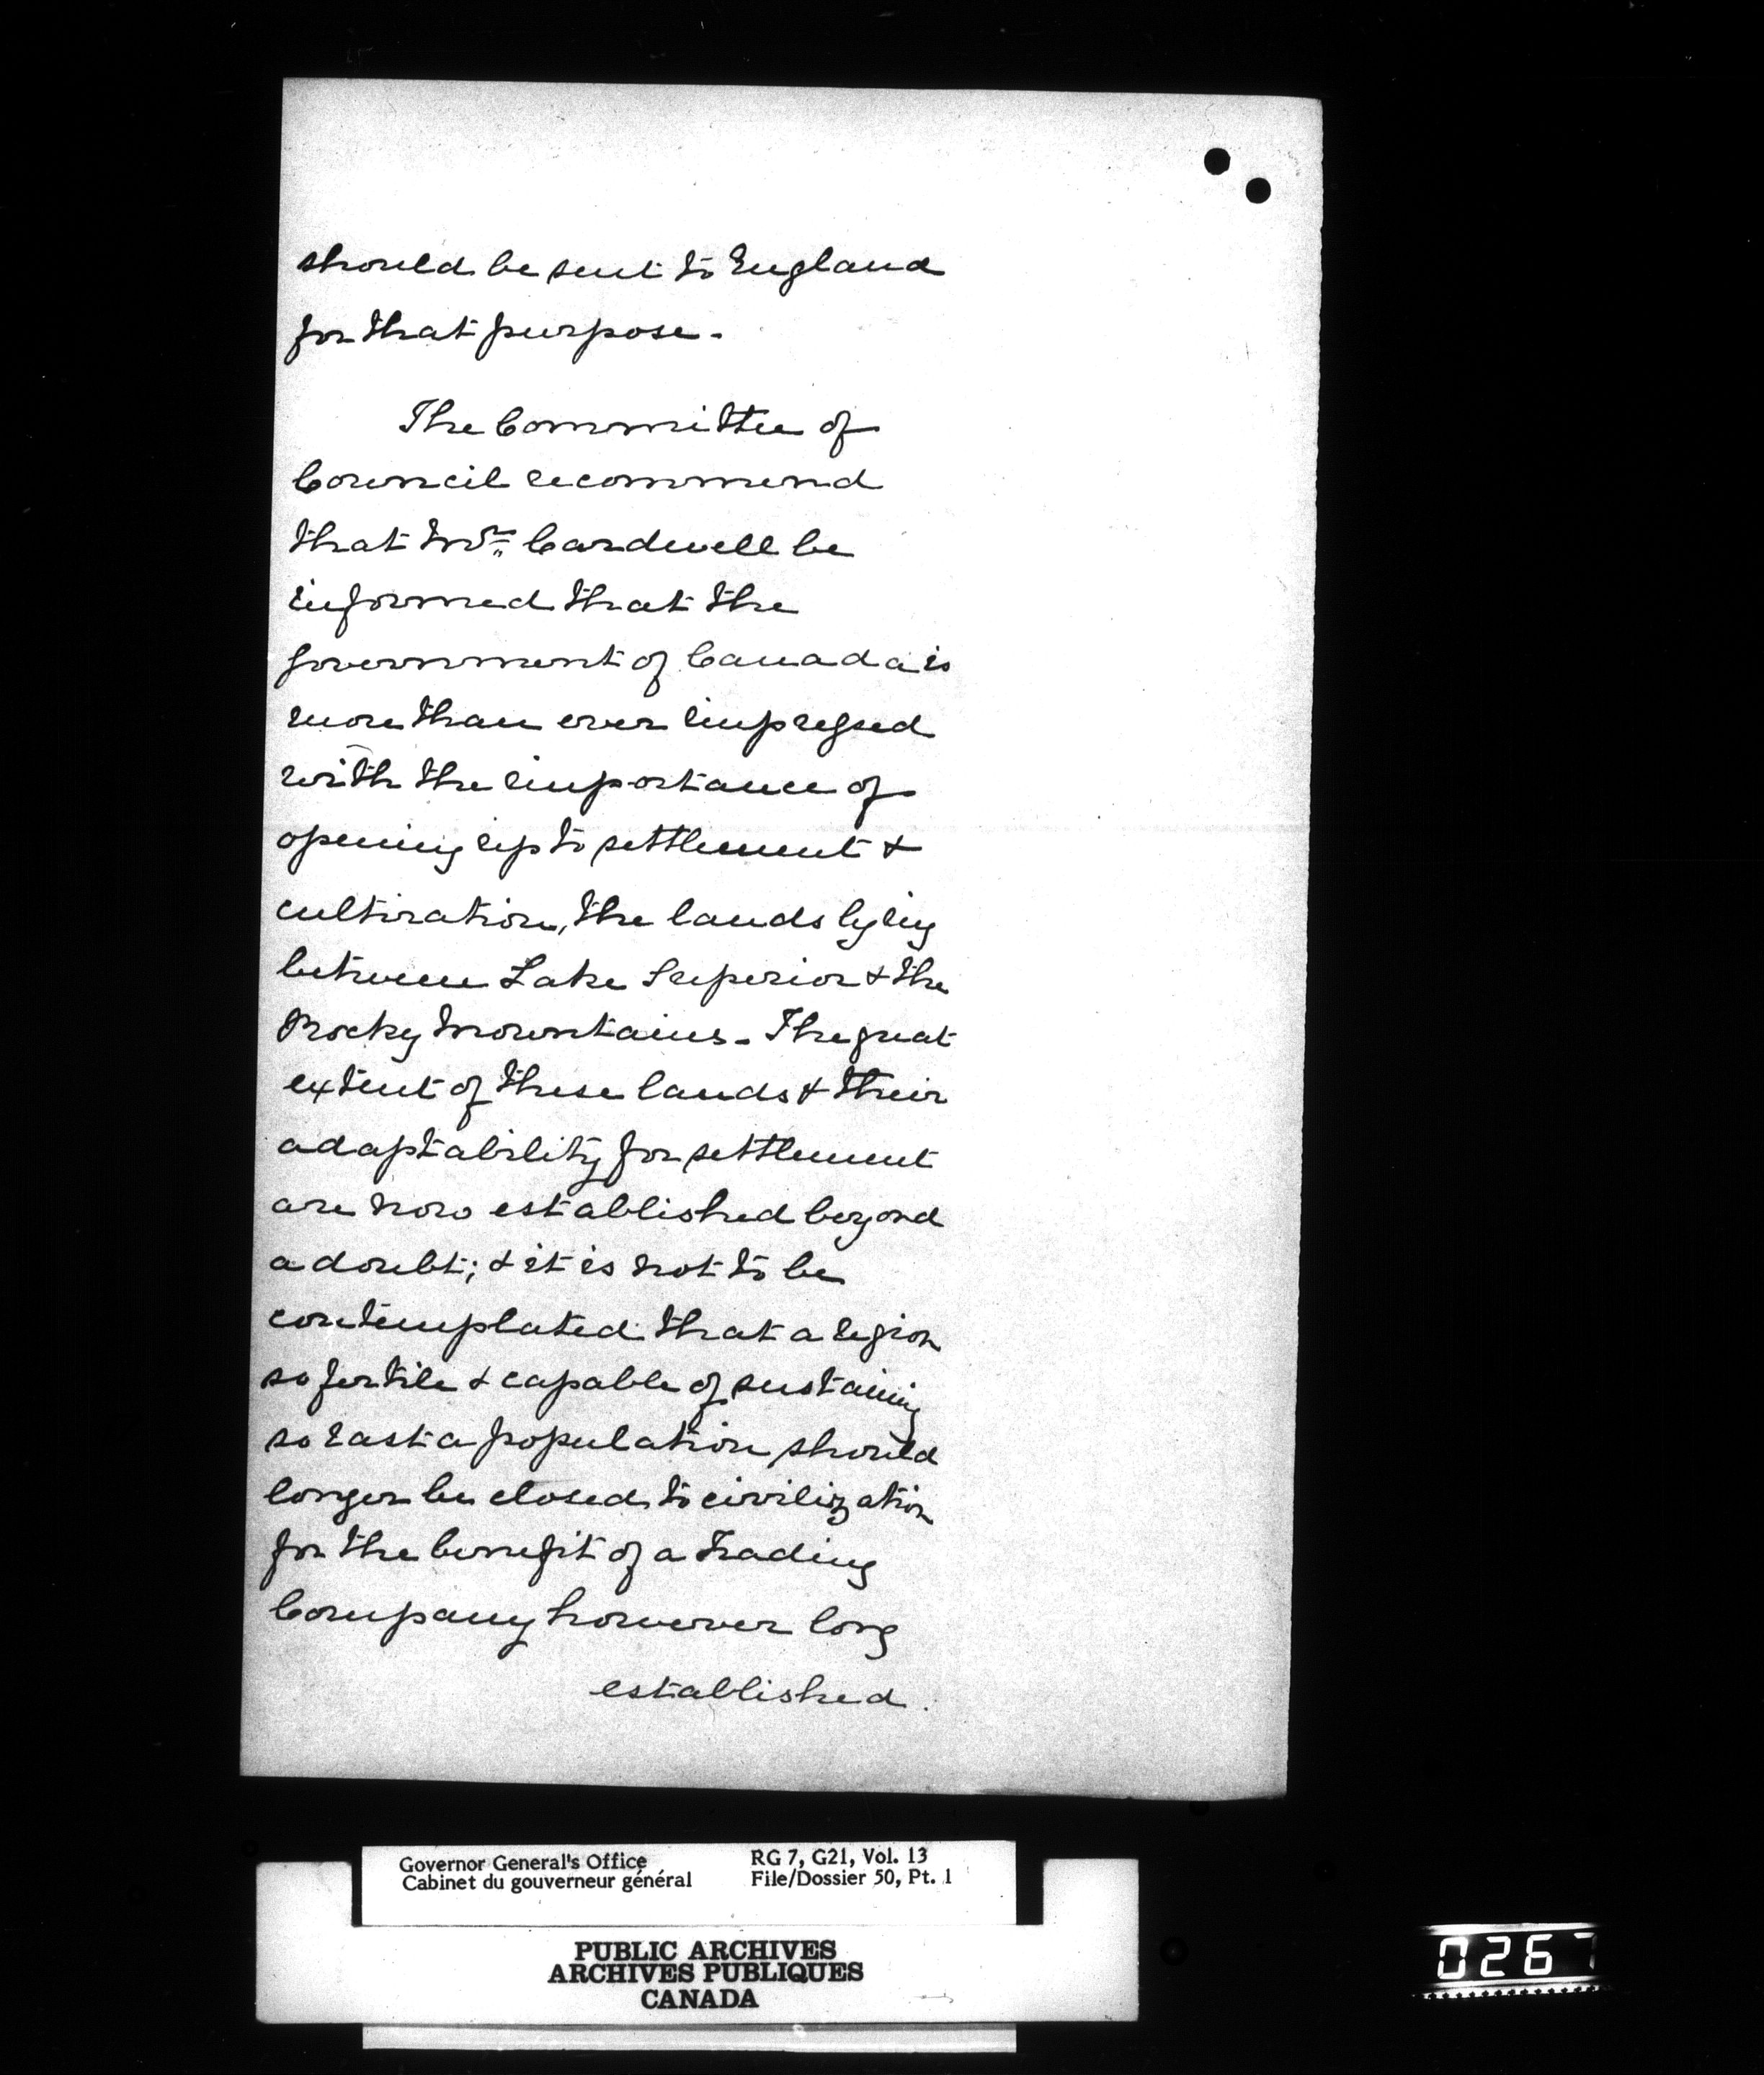 should be sent to England
for that purpose.
The Committee of
Council recommend
that Mr. Cardwell be
informed that the
Government of Canada is
more than ever impressed
with the importance of
opening up to settlement &
cultivation, the lands lying
between Lake Superior & the
Rocky Mountains. The great
extent of these lands & their
adaptability for settlement
are now established beyond
a doubt; & it is not to be
contemplated that a region
so fertile & capable of sustaining
so vast a population should
longer be closed to civilization
for the benefit of a Trading
Company however long
established.
Governor General's Office
Cabinet du gouverneur général
RG 7, G21, Vol. 13
File/Dossier 50, Pt. 1
PUBLIC ARCHIVES
ARCHIVES PUBLIQUES
CANADA
0267